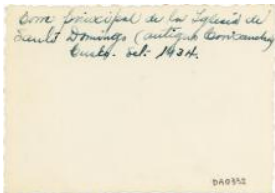 Torre principal de la Iglesia de
Santo Domingo (antiguo Coricancha)
Cuzco. Set. 1934.
DA0332